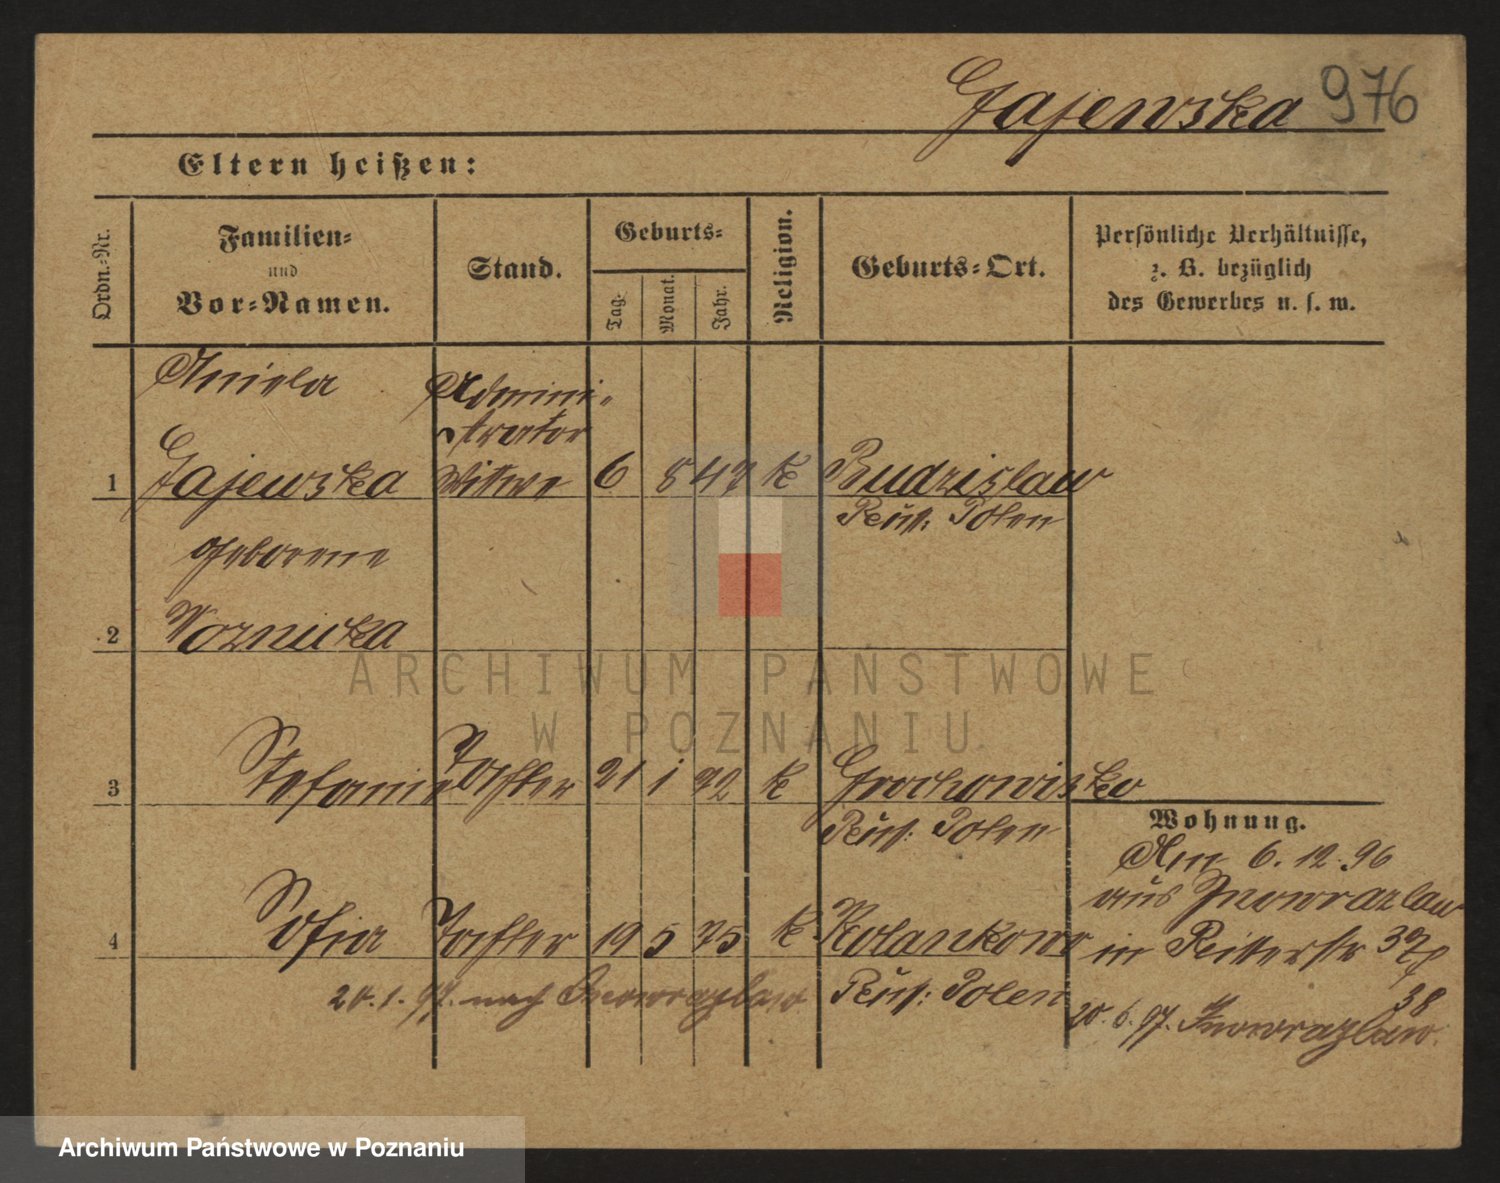 Gajewska 976
Eltern heißen:
Ordn.-Nr.
Familien-
und
Vor-Namen.
Stand.
Geburts-
Tag.
Monat.
Jahr.
Religion.
Geburts-Ort.
Persönliche Verhältnisse,
z. B. bezüglich
des Gewerbes u. s. w.
Aniela
Admini-
strator
1 Gajewska Wittwe 6 8 47 k Budzislaw
Russ: Polen
geborene
2 Woznicka
ARCHIWUM PAŃSTWOWE
W POZNANIU
3 Stefanie Tochter 21 1 72 k Grochowisko
Russ: Polen
Wohnung.
Am 6. 12. 96
aus Inowrazlaw
4 Sofia Tochter 19 5 75 k Kolankowo
in Ritterstr
38
20. 1. 97. nach Inowrazlaw
Russ: Polen
20. 6. 97. Inowrazlaw.
Archiwum Państwowe w Poznaniu